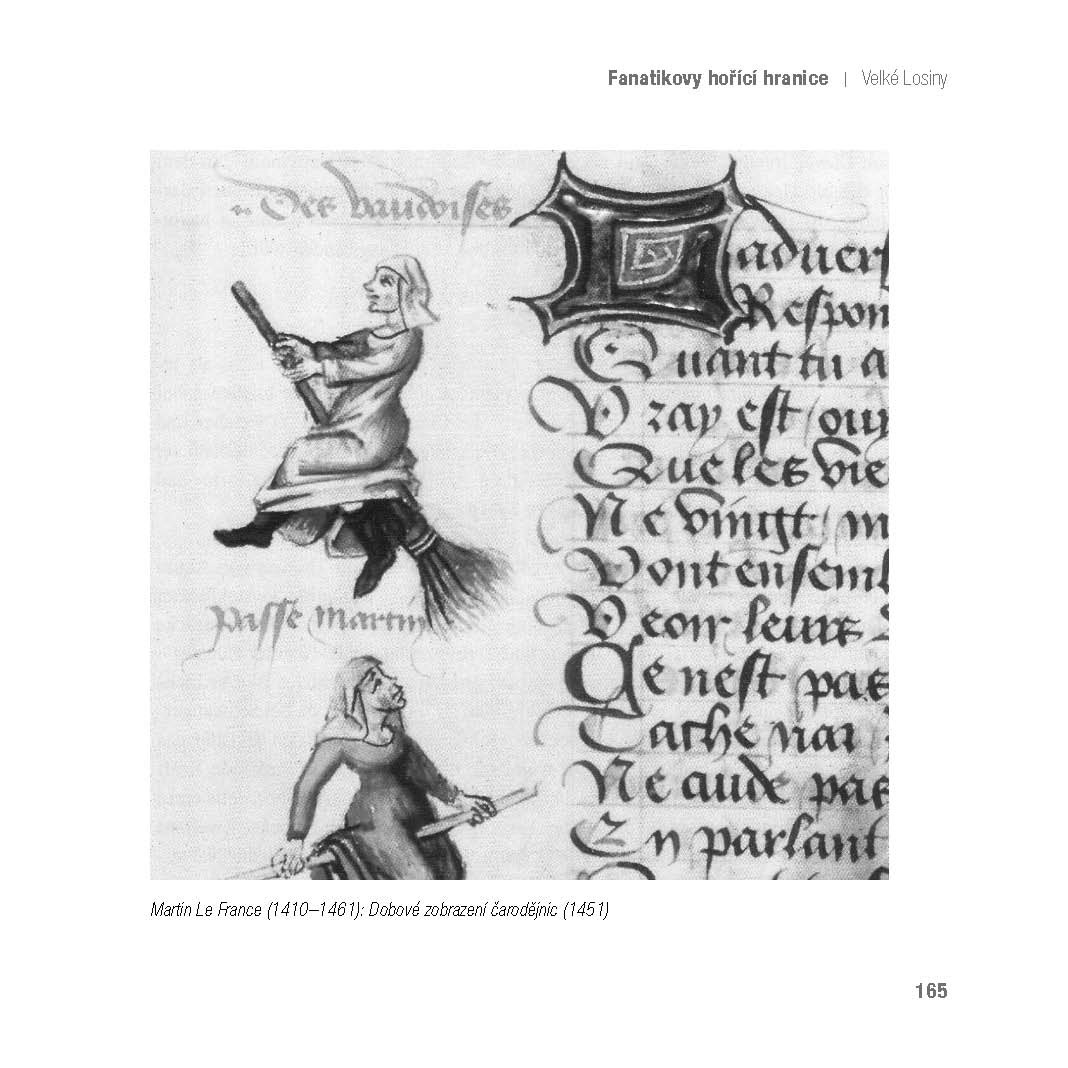 Fanatikovy hořící hranice | Velké Losiny
Des vaudoises
L aduers
Respon
Quant tu a
Vray est ouy
Que les vie
Ne vingt m
Vont ensembl
passe martin
Veoir leurs
Ce nest pas
Tache
Ne cuide pas
En parlant
Martin Le France (1410–1461): Dobové zobrazení čarodějnic (1451)
165